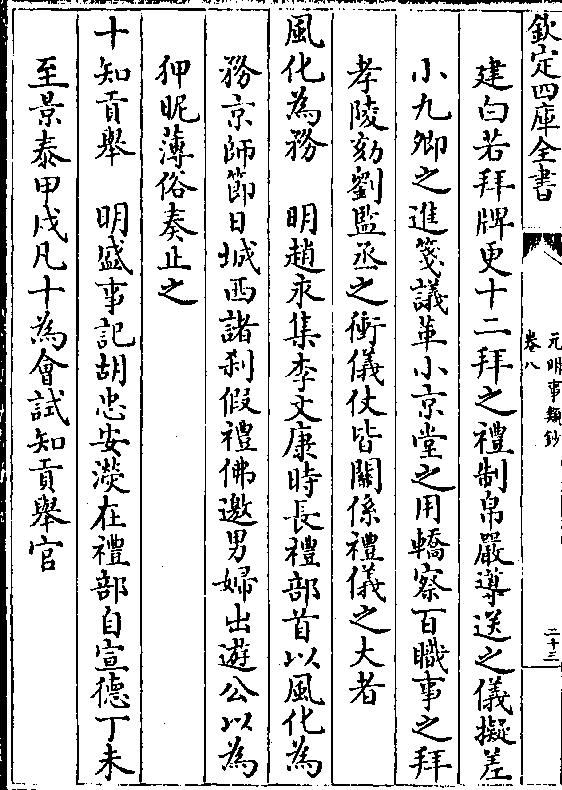 欽定四庫全書
元明事類鈔
卷八
二十三
建白若拜牌更十二拜之禮制帛嚴導送之儀擬差
小九卿之進箋議革小京堂之用轎察百職事之拜
孝陵劾劉監丞之衝儀仗皆關係禮儀之大者
風化為務　明趙永集李文康時長禮部首以風化為
務京師節日城西諸刹假禮佛邀男婦出遊公以為
狎昵薄俗奏止之
十知貢舉　明盛事記胡忠安濙在禮部自宣德丁未
至景泰甲戌凡十為會試知貢舉官